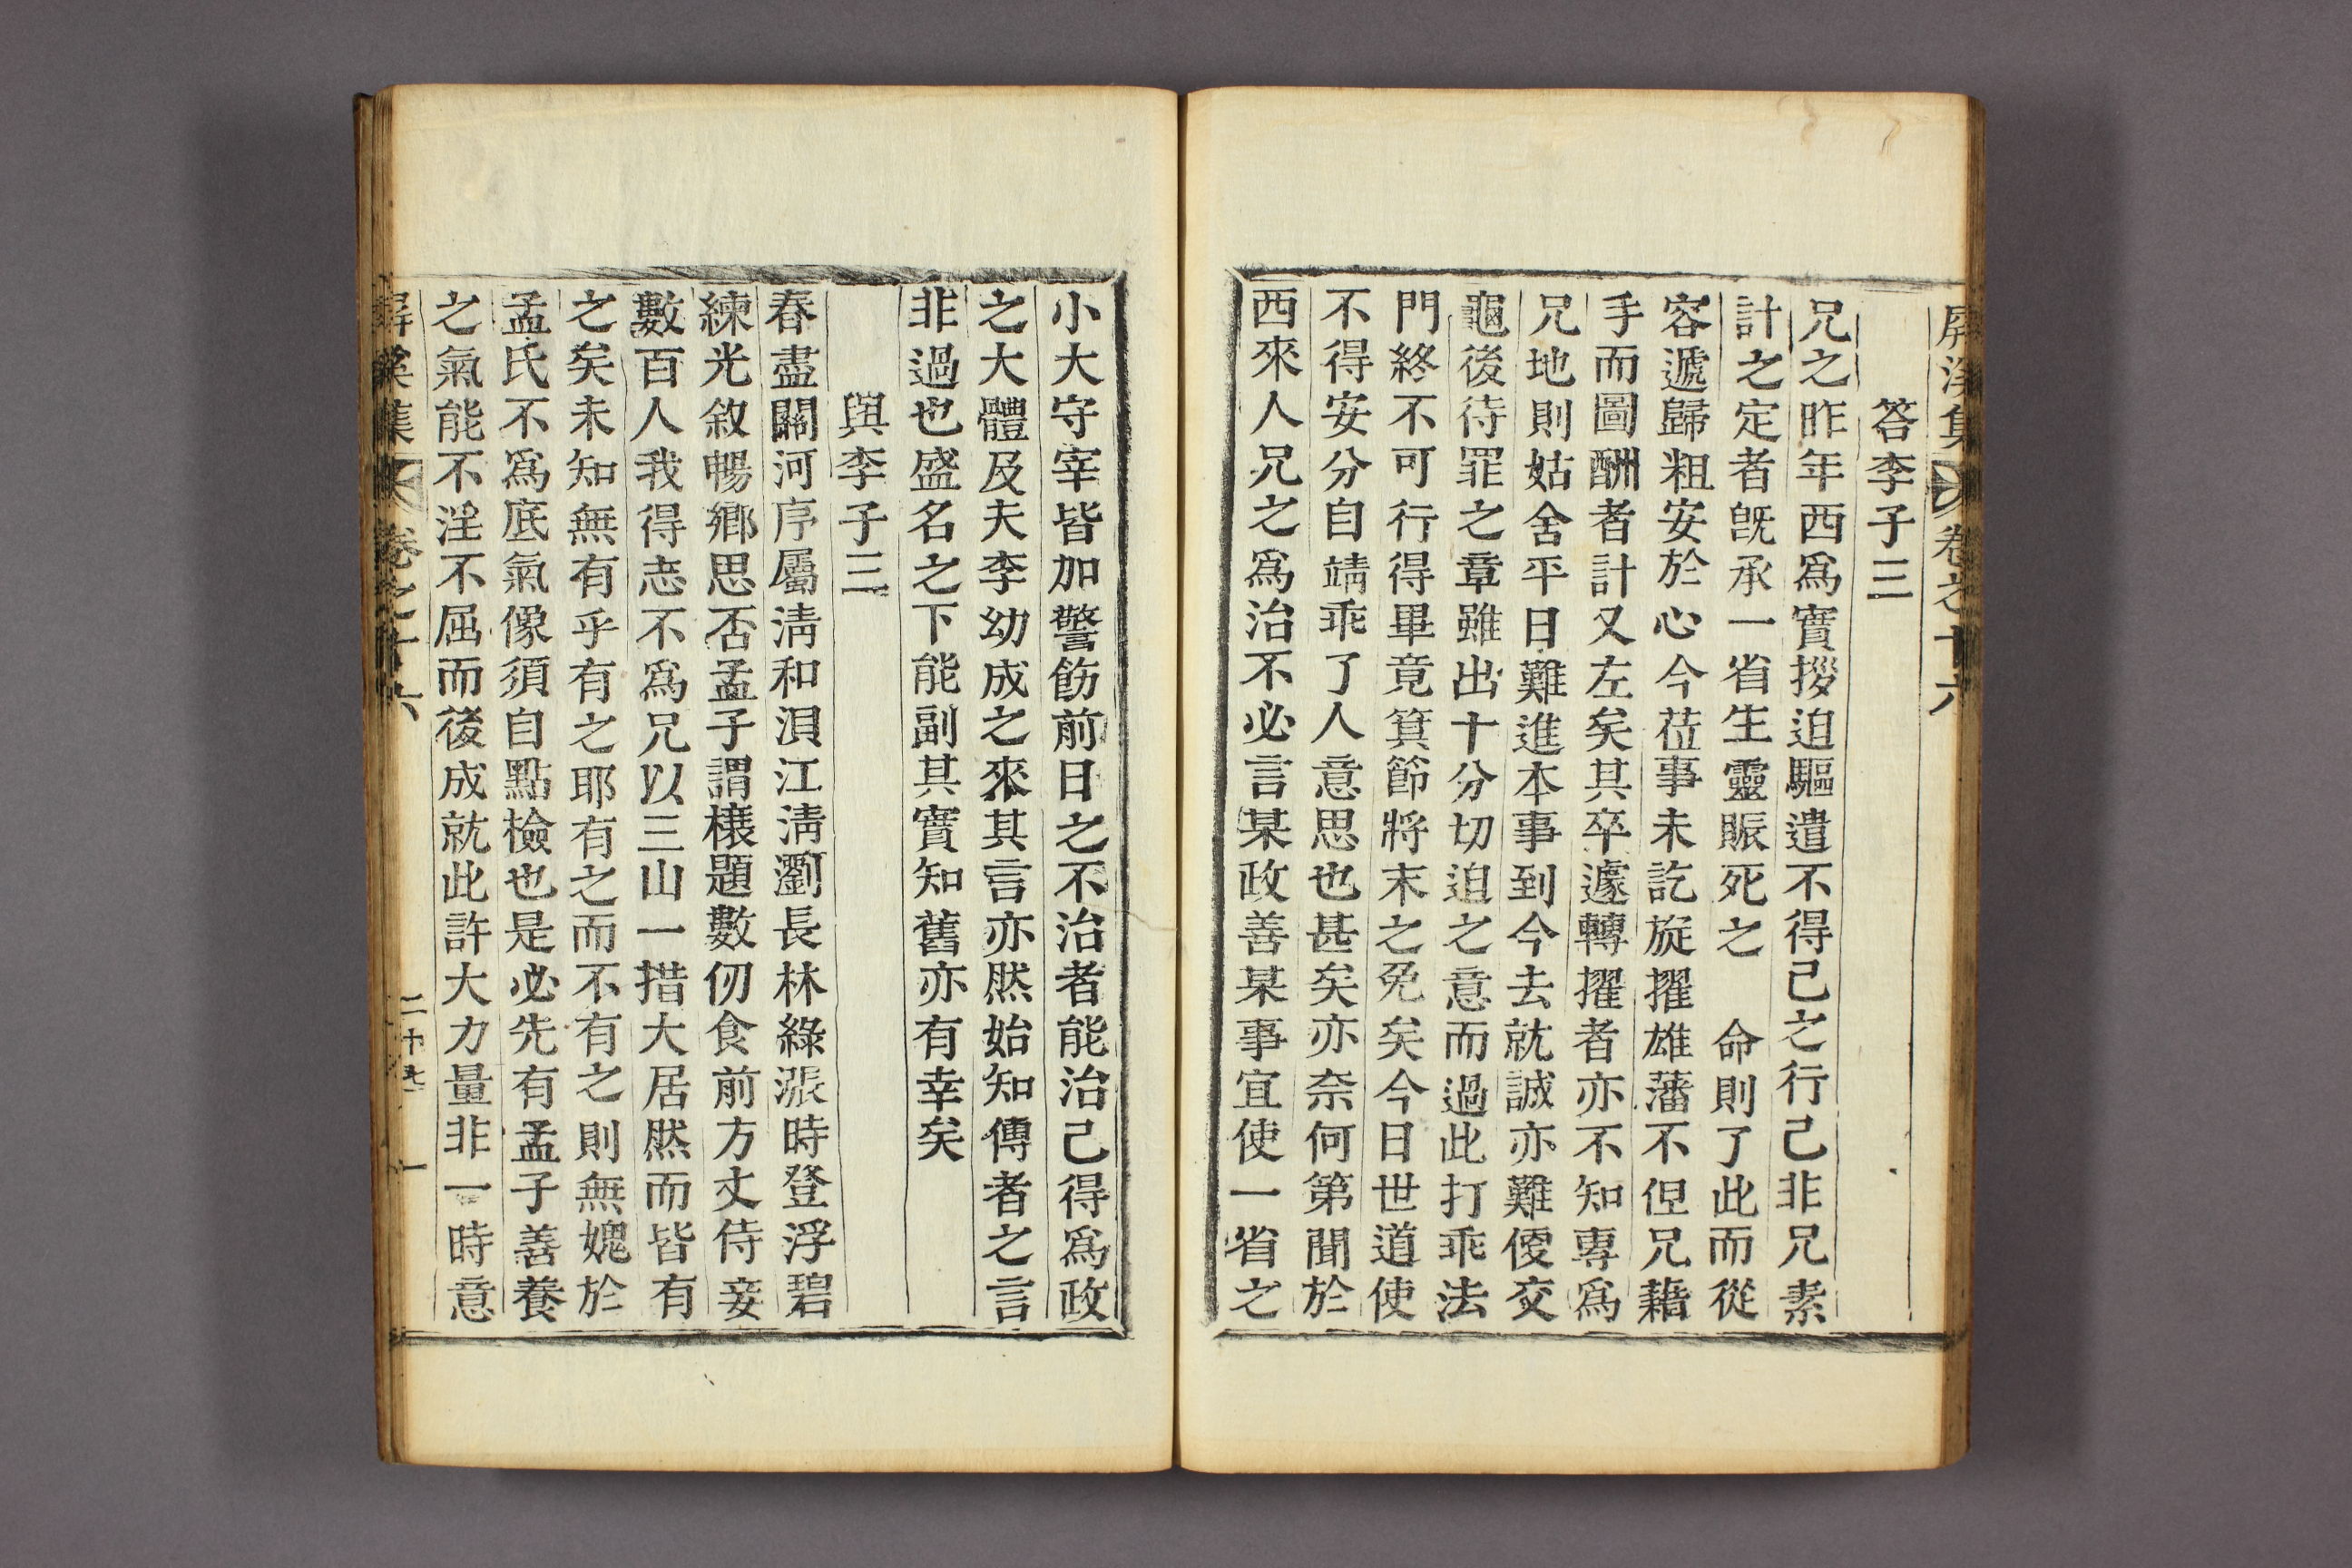 屏溪集 卷之十六
答李子三
兄之昨年西爲實拶迫驅遣不得已之行已非兄素
計之定者旣承一省生靈賑死之 命則了此而從
容遞歸粗安於心今莅事未訖旋擢雄藩不但兄藉
手而圖酬者計又左矣其卒遽轉擢者亦不知專爲
兄地則姑舍平日難進本事到今去就誠亦難便交
龜後待罪之章雖出十分切迫之意而過此打乖法
門終不可行得畢竟箕節將末之免矣今日世道使
不得安分自靖乖了人意思也甚矣亦奈何第聞於
西來人兄之爲治不必言某政善某事宜使一省之
小大守宰皆加警飭前日之不治者能治已得爲政
之大體及夫李幼成之來其言亦然始知傳者之言
非過也盛名之下能副其實知舊亦有幸矣
與李子三
春盡關河序屬淸和浿江淸瀏長林綠漲時登浮碧
練光敘暢鄉思否孟子謂榱題數仞食前方丈侍妾
數百人我得志不爲兄以三山一措大居然而皆有
之矣未知無有乎有之耶有之而不有之則無媿於
孟氏不爲底氣像須自點檢也是必先有孟子善養
之氣能不淫不屈而後成就此許大力量非一時意
屏溪集 卷之十六